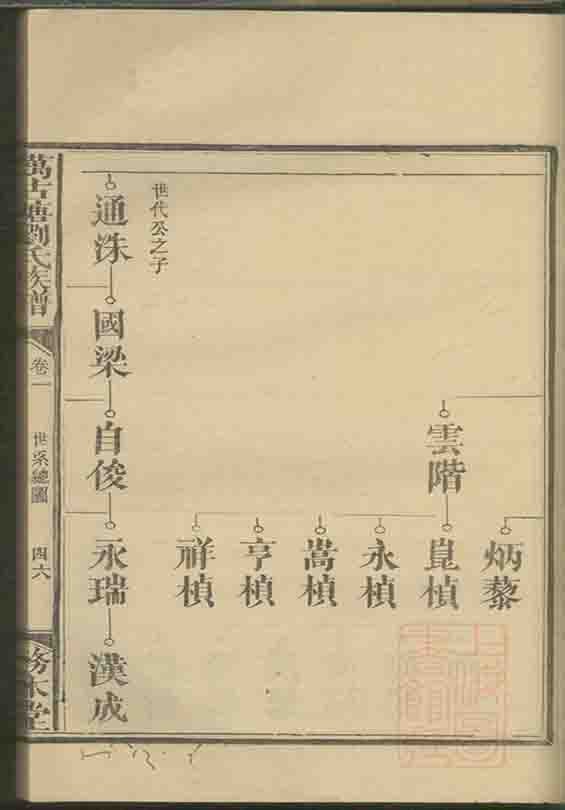 炳藜
雲階
崑楨
永楨
嵩楨
亨楨
祥楨
世代公之子
通洙
國梁
自俊
永瑞
漢成
萬古塘劉氏族譜
卷一
世系總圖
四六
務本堂